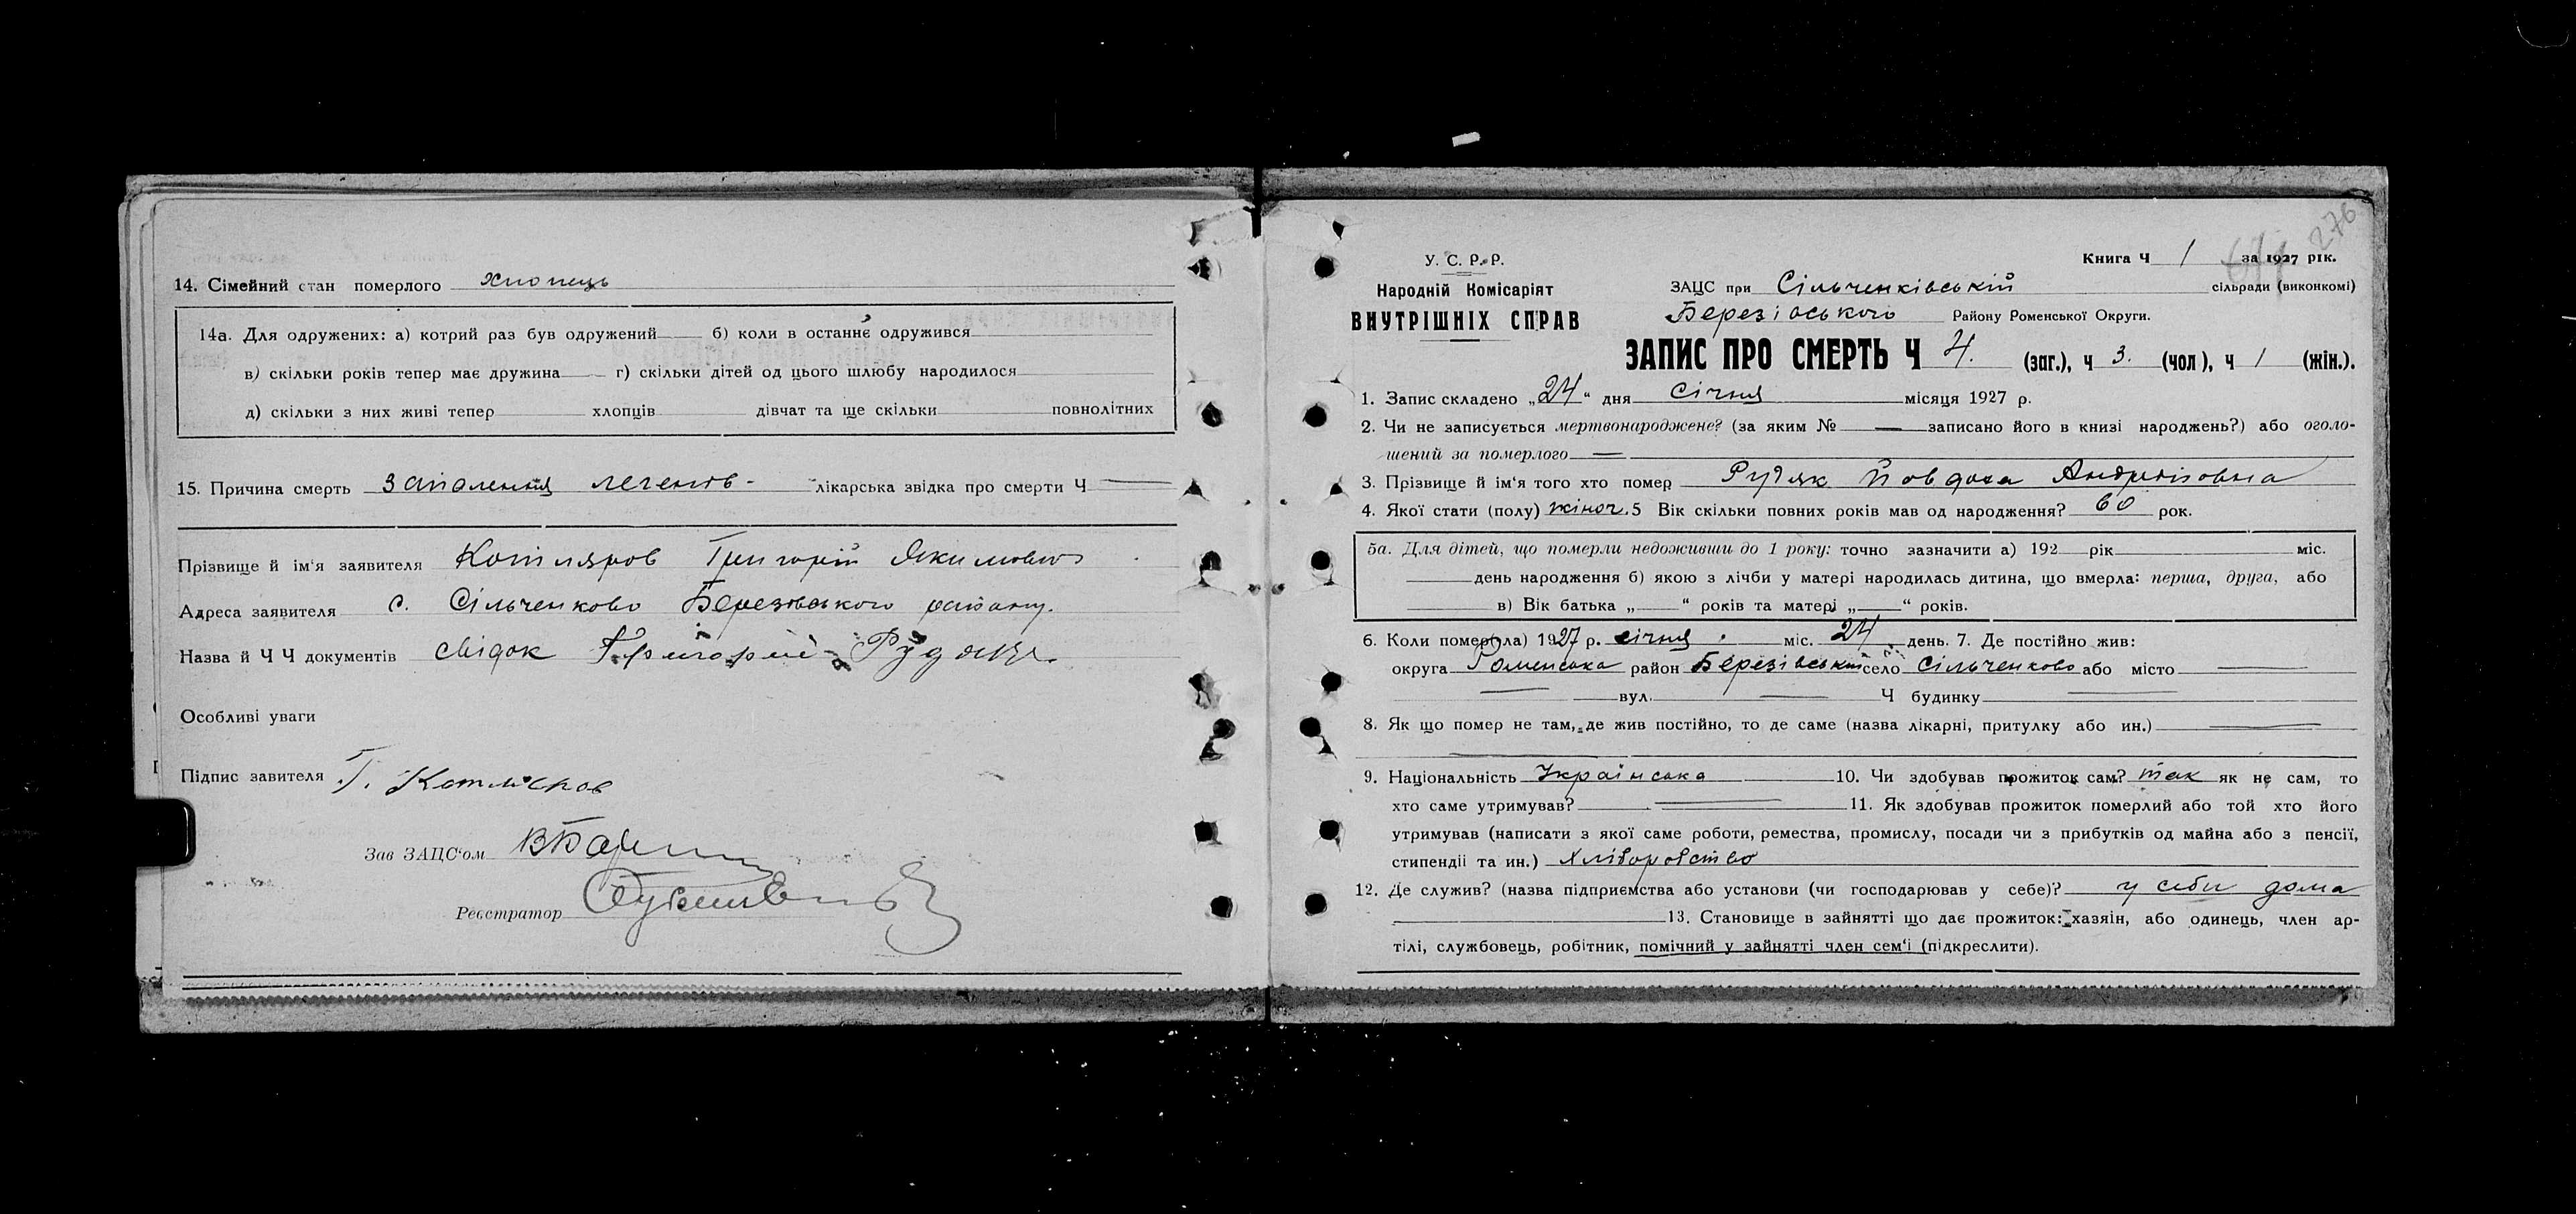 14. Сімейний стан померлого хлопець
14а. Для одружених: а) котрий раз був одружений б) коли в останнє одружився
в) скільки років тепер має дружина г) скільки дітей од цього шлюбу народилося
д) скільки з них живі тепер хлопців дівчат та ще скільки повнолітних
15. Причина смерть запалення легенів - лікарська звідка про смерти Ч —
Прізвище й ім'я заявителя Котляров Григорій Якимович
Адреса заявителя с. Сільченково Березівського району.
Назва й Ч Ч документів свідок Григорий Рудяка.
Особливі уваги
Підпис завителя Г. Котляров
Зав ЗАЦС'ом
Реєстратор
276
Книга Ч 1 за 1927 рік.
У. С. Р. Р.
Народній Комісаріят
ВНУТРІШНІХ СПРАВ
ЗАЦС при Сільченківській сільради (виконкомі)
Березівського Району Роменської Округи.
ЗАПИС ПРО СМЕРТЬ Ч 4. (заг.), ч 3. (чол), ч 1 (жін.).
1. Запис складено „24" дня Січня місяця 1927 р.
2. Чи не записується мертвонароджене? (за яким № — записано його в книзі народжень?) або оголо-
шений за померлого —
3. Прізвище й ім'я того хто помер Рудяк Йовдоха Андріївна
4. Якої стати (полу) жіноч. 5 Вік скільки повних років мав од народження? 60 рок.
5а. Для дітей, що померли недоживши до 1 року: точно зазначити а) 192 рік міс.
день народження б) якою з лічби у матері народилась дитина, що вмерла: перша, друга, або
в) Вік батька „ " років та матері „ " років.
6. Коли помер(ла) 1927 р. січня міс. 24 день. 7. Де постійно жив:
округа Роменська район Березівський село Сільченково або місто —
— вул. — Ч будинку —
8. Як що помер не там, де жив постійно, то де саме (назва лікарні, притулку або ин.) —
9. Національність Українська 10. Чи здобував прожиток сам? так як не сам, то
хто саме утримував? — 11. Як здобував прожиток померлий або той хто його
утримував (написати з якої саме роботи, ремества, промислу, посади чи з прибутків од майна або з пенсії,
стипендії та ин.) Хліборобство
12. Де служив? (назва підприємства або установи (чи господарював у себе)? у себи дома
13. Становище в зайнятті що дає прожиток: хазяін, або одинець, член ар-
тілі, службовець, робітник, помічний у зайнятті член сем'і (підкреслити).